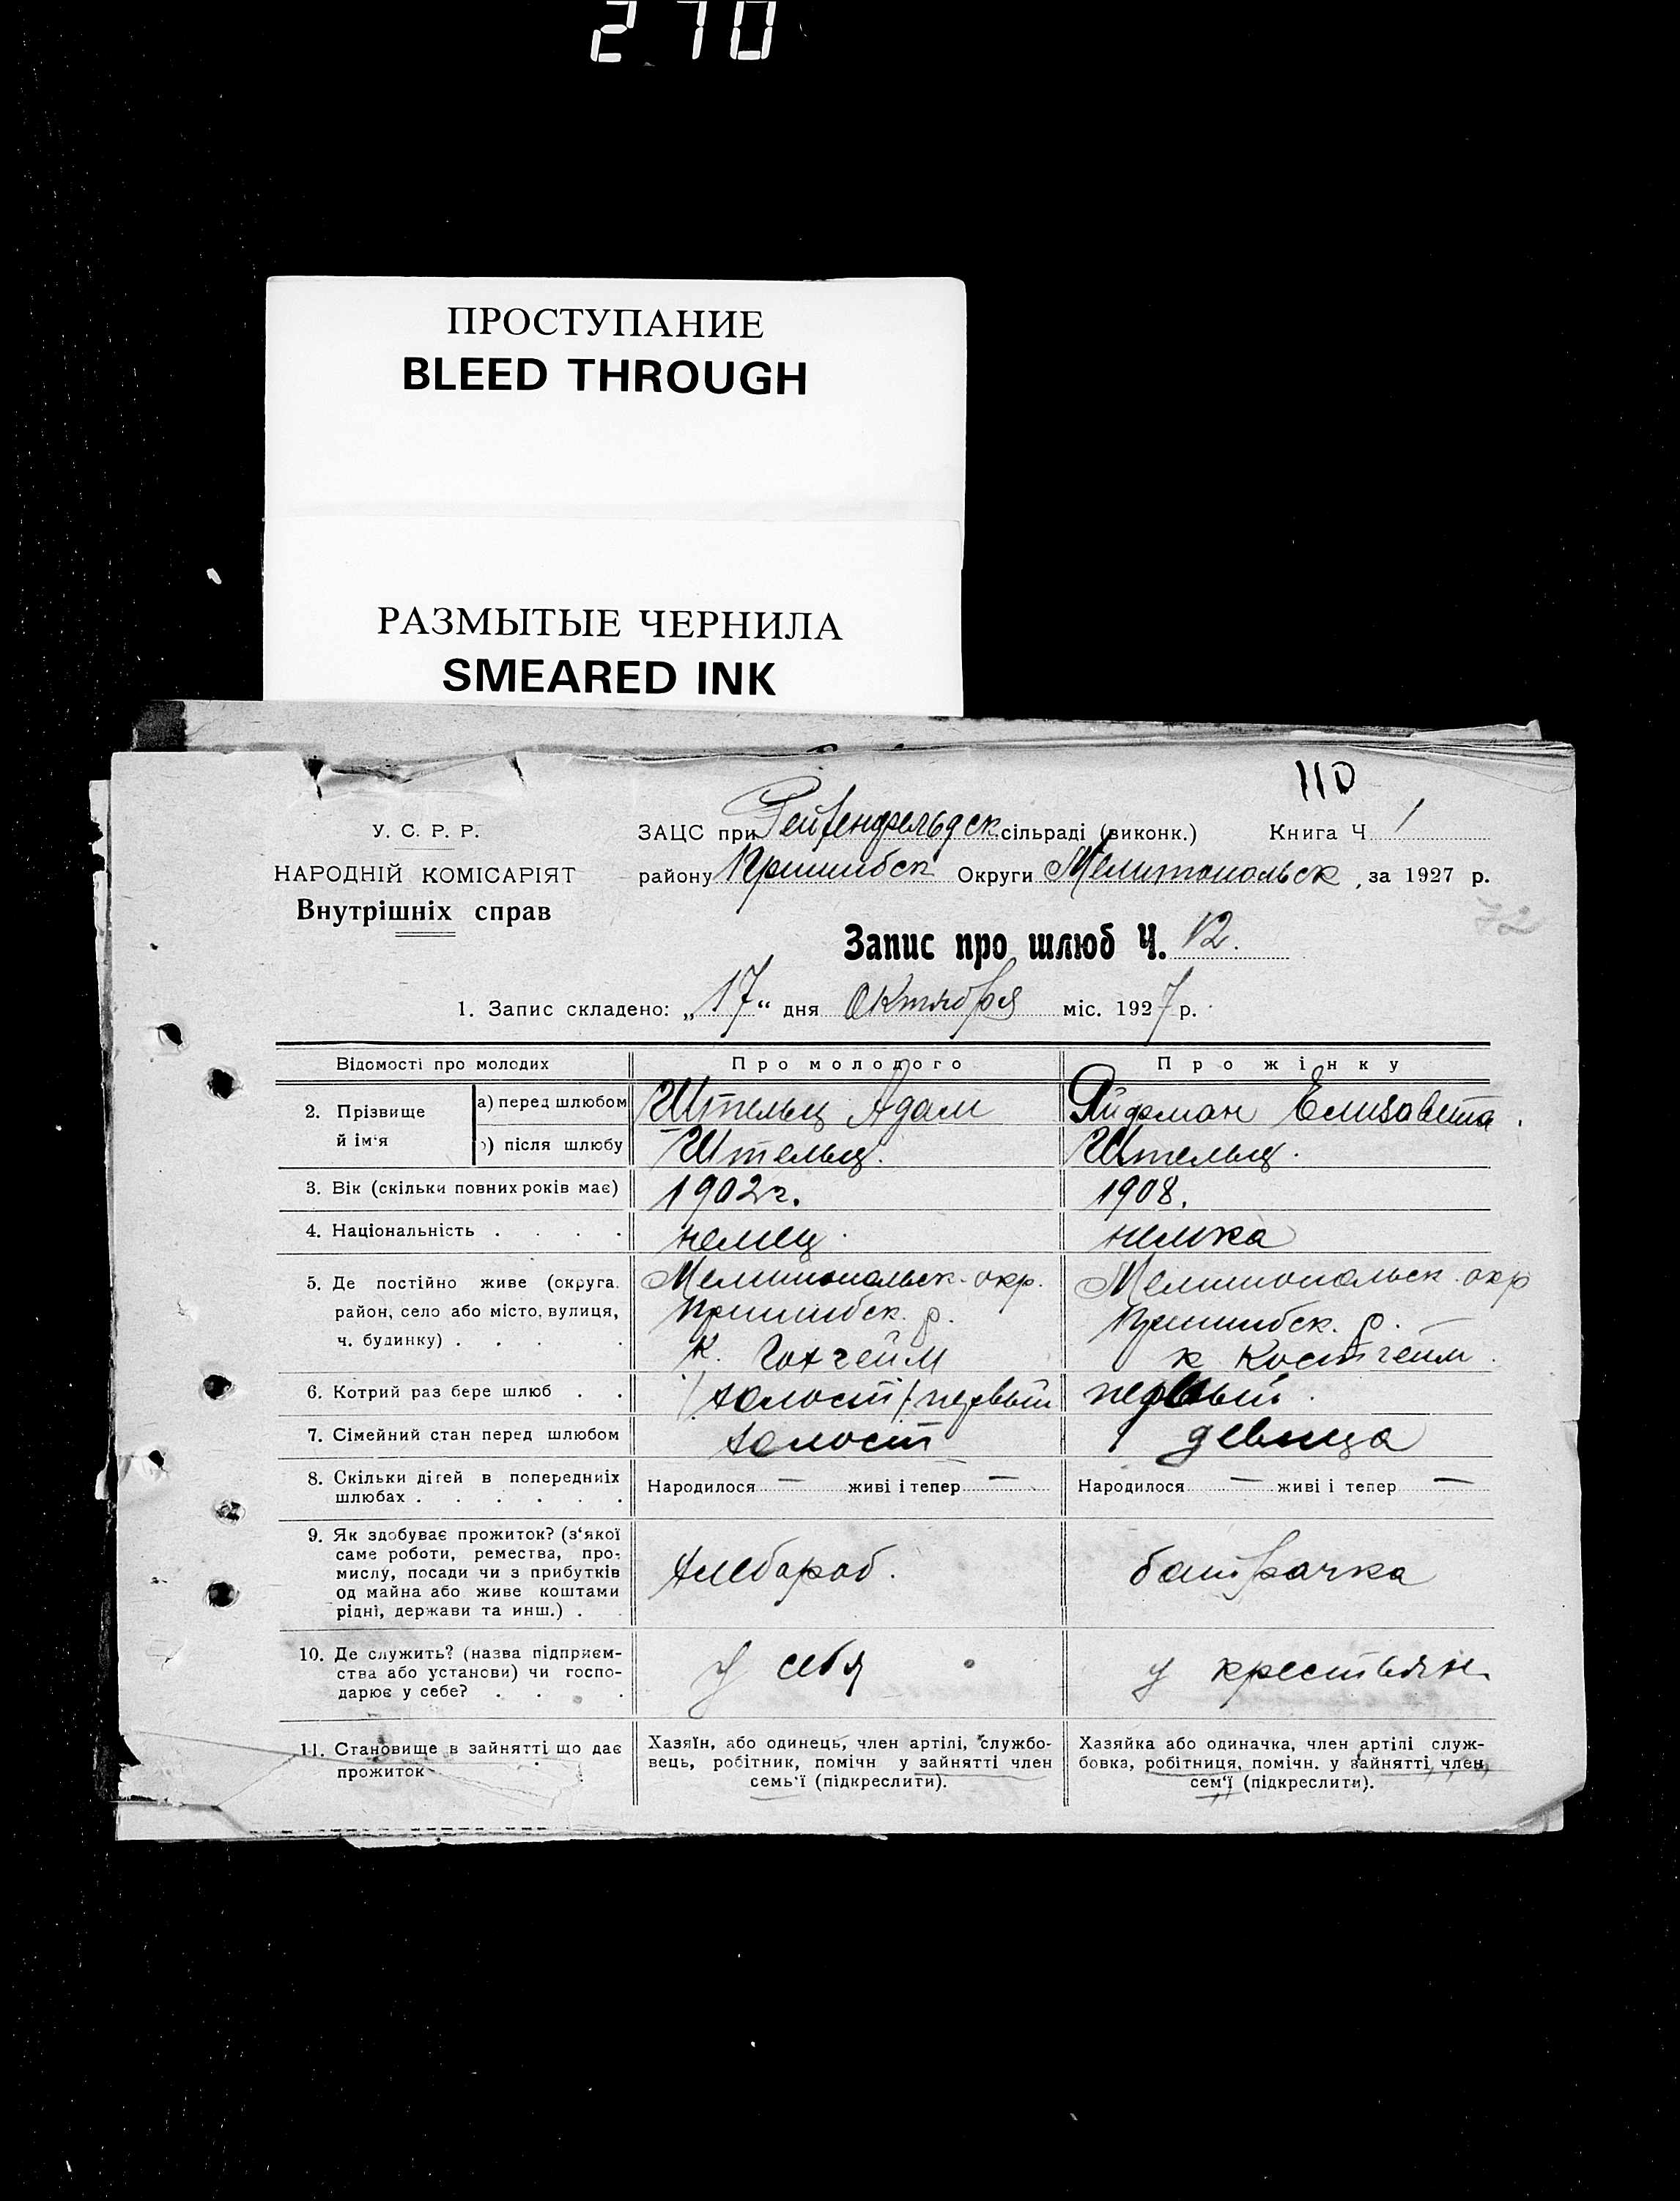 270
ПРОСТУПАНИЕ
BLEED THROUGH
РАЗМЫТЫЕ ЧЕРНИЛА
SMEARED INK
110
У. С. Р. Р.
НАРОДНІЙ КОМІСАРІЯТ
Внутрішніх справ
ЗАЦС при Рейхенфельдск. сільраді (виконк.) Книга Ч 1
району Пришибск Округи Мелитопольск, за 1927 р.
72
Запис про шлюб Ч. 12.
1. Запис складено: „17“ дня Октября міс. 1927 р.
Відомості про молодих
Про молодого
Про жінку
2. Прізвище й ім‘я
а) перед шлюбом
Штельц Адам
Елизавета.
б) після шлюбу
Штельц.
Штельц.
3. Вік (скільки повних років має)
1902 г.
1908.
4. Національність . . . .
немец.
немка
5. Де постійно живе (округа.
район, село або місто, вулиця,
ч. будинку) . . . .
Мелитопольск. окр.
Пришибск. р.
к. Гохгейм
Мелитопольск. окр
Пришибск. р.
к Костгейм.
6. Котрий раз бере шлюб . .
/холост/ первый
первый.
7. Сімейний стан перед шлюбом
холост
девица
8. Скільки дітей в попередниіх
шлюбах . . . . . .
Народилося — живі і тепер —
Народилося — живі і тепер —
9. Як здобуває прожиток? (з‘якої
саме роботи, ремества, про-
мислу, посади чи з прибутків
од майна або живе коштами
рідні, держави та инш.) .
хлебороб.
батрачка
10. Де служить? (назва підприєм-
ства або установи) чи госпо-
дарює у себе? . . . .
у себя
у крестьян.
11. Становище в зайнятті що дає
прожиток
Хазяїн, або одинець, член артілі, службо-
вець, робітник, помічн у зайнятті член
семь‘ї (підкреслити).
Хазяйка або одиначка, член артілі служ-
бовка, робітниця, помічн. у зайнятті, член,
сем‘ї (підкреслити).